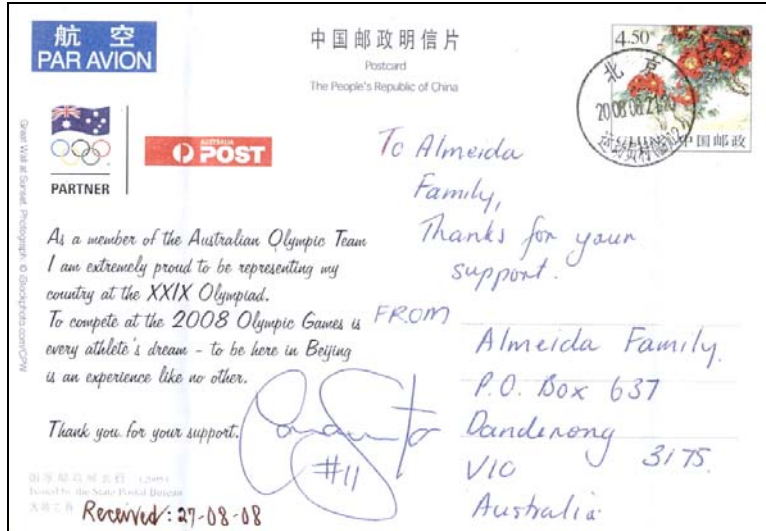 航 空
PAR AVION
中国邮政明信片
Postcard
The People's Republic of China
4.50
北 京
2008.08.21.16
中国邮政
CHINA
PARTNER
AUSTRALIA
POST
Great Wall at Sunset. Photograph: © iStockphoto.com/GPW
To Almeida
Family,
Thanks for your
support.
As a member of the Australian Olympic Team
I am extremely proud to be representing my
country at the XXIX Olympiad.
To compete at the 2008 Olympic Games is
every athlete's dream - to be here in Beijing
is an experience like no other.
Thank you for your support.
#11
FROM
Almeida Family.
P.O. Box 637
Dandenong
VIC 3175.
Australia.
Issued by the State Postal Bureau
Received: 27-08-08